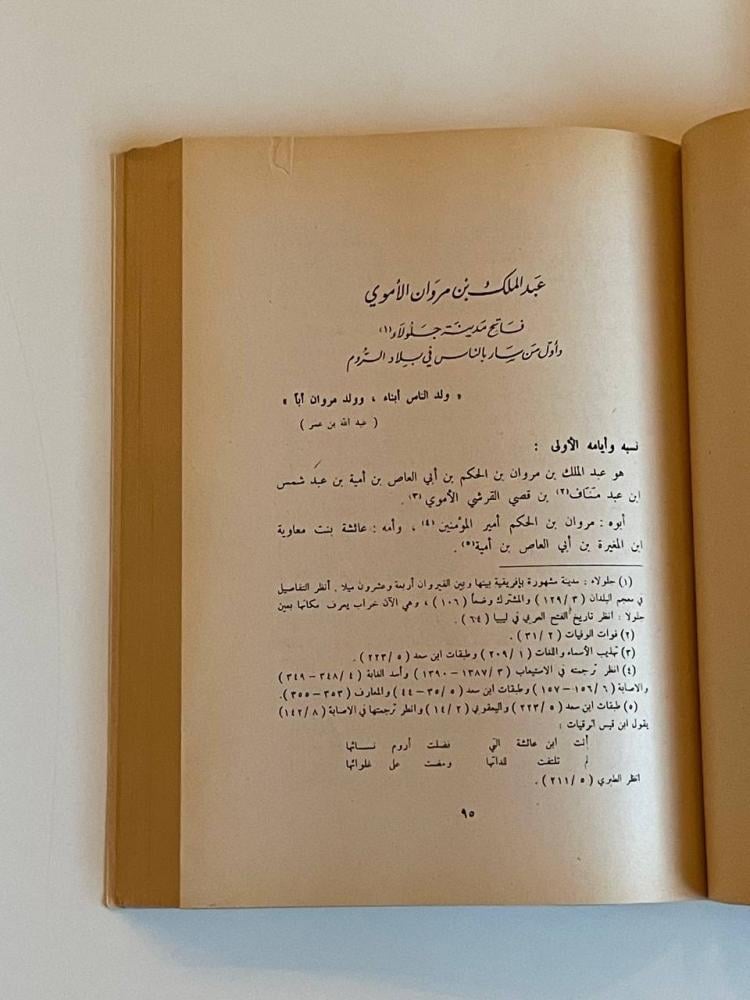 عبد الملك بن مروان الأموي
فاتح مدينة جلولاء (١)
وأول من سار بالناس في بلاد الروم
« ولد الناس أبناء ، وولد مروان أباً »
( عبد الله بن عمر )
نسبه وأيامه الأولى :
هو عبد الملك بن مروان بن الحكم بن أبي العاص بن أمية بن عبد شمس
ابن عبد مناف (٢) بن قصي القرشي الأموي (٣) .
أبوه : مروان بن الحكم أمير المؤمنين (٤) ، وأمه : عائشة بنت معاوية
ابن المغيرة بن أبي العاص بن أمية (٥) .
(١) جلولاء : مدينة مشهورة بإفريقية بينها وبين القيروان أربعة وعشرون ميلا . أنظر التفاصيل
في معجم البلدان ( ٣ / ١٢٩ ) والمشترك وضعاً ( ١٠٦ ) ، وهي الآن خراب يعرف مكانها بعين
جلولا : انظر تاريخ الفتح العربي في ليبيا ( ٦٤ ) .
(٢) فوات الوفيات ( ٢ / ٣١ ) .
(٣) تهذيب الأسماء واللغات ( ١ / ٢٠٩ ) وطبقات ابن سعد ( ٥ / ٢٢٣ ) .
(٤) انظر ترجمته في الاستيعاب ( ٣ / ١٣٨٧ – ١٣٩٠ ) وأسد الغابة ( ٤ / ٣٤٨ – ٣٤٩ )
والاصابة ( ٦ / ١٥٦ – ١٥٧ ) وطبقات ابن سعد ( ٥ / ٣٥ – ٤٤ ) والمعارف ( ٣٥٣ – ٣٥٥ ) .
(٥) طبقات ابن سعد ( ٥ / ٢٢٣ ) واليعقوبي ( ٢ / ١٤ ) وانظر ترجمتها في الاصابة ( ٨ / ١٤٢ )
يقول ابن قيس الرقيات :
أنت ابن عائشة التي فضلت أروم نسائها
لم تلتفت للداتها ومضت على غلوائها
انظر الطبري ( ٥ / ٢١١ ) .
٩٥